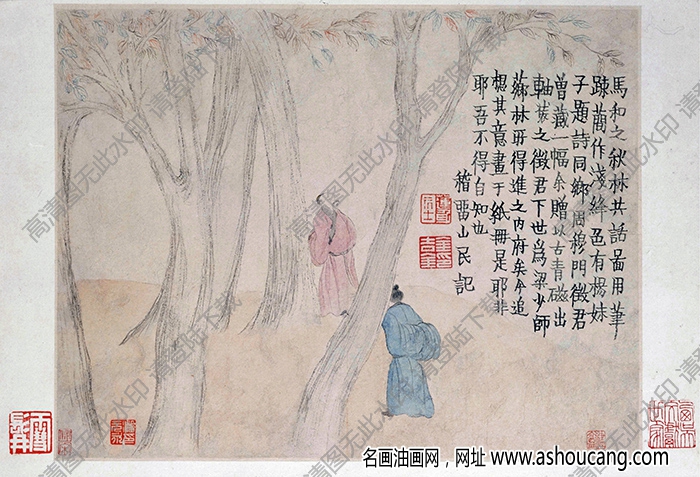 馬和之秋林共話啚用筆
疎蕳作淺絳色有楊妹
子題詩同鄉周穆門徵君
曽藏一幅余贈以古青磁出
軸裝之徵君下世爲梁少師
薌林所得進之内府矣今追
想其意畫于紙冊是耶非
耶吾不得自知也
稽畱山民記
名画油画网，网址 www.ashoucang.com
高清图无此水印 请登陆下载